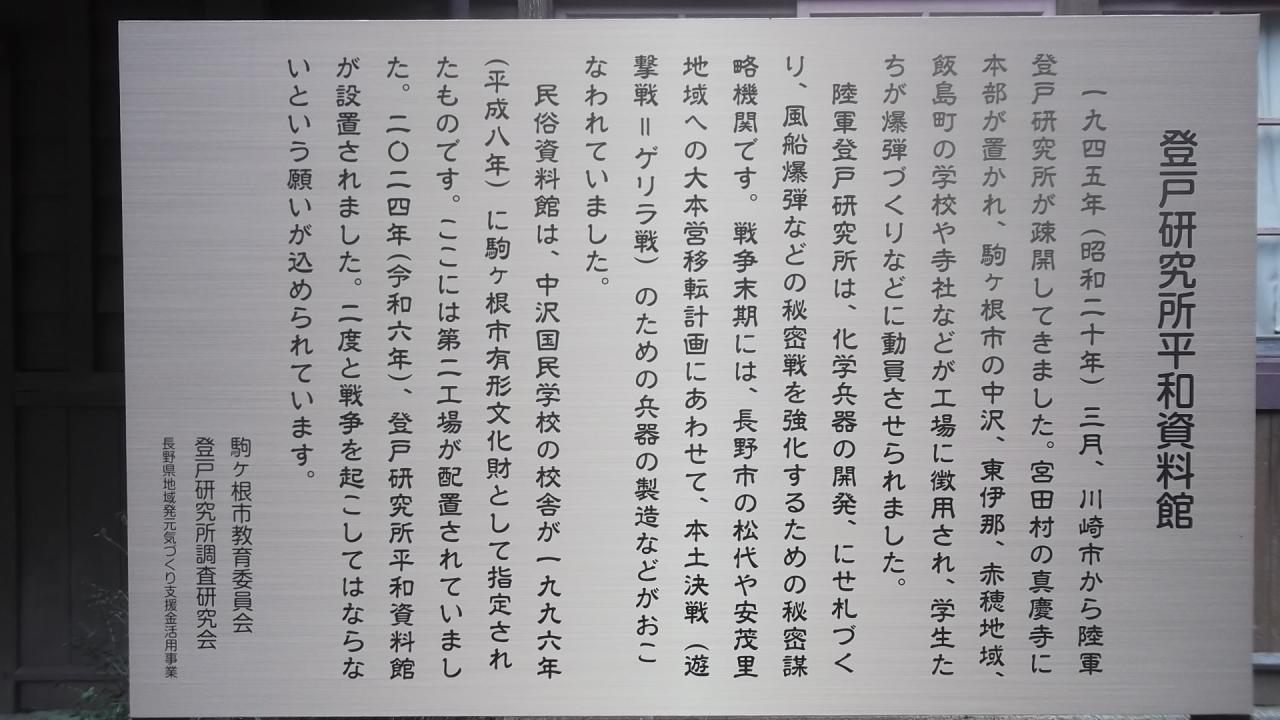 登戸研究所平和資料館
一九四五年(昭和二十年)三月、川崎市から陸軍
登戸研究所が疎開してきました。宮田村の真慶寺に
本部が置かれ、駒ヶ根市の中沢、東伊那、赤穂地域、
飯島町の学校や寺社などが工場に徴用され、学生た
ちが爆弾づくりなどに動員させられました。
陸軍登戸研究所は、化学兵器の開発、にせ札づく
り、風船爆弾などの秘密戦を強化するための秘密謀
略機関です。戦争末期には、長野市の松代や安茂里
地域への大本営移転計画にあわせて、本土決戦(遊
撃戦=ゲリラ戦)のための兵器の製造などがおこ
なわれていました。
民俗資料館は、中沢国民学校の校舎が一九九六年
(平成八年)に駒ヶ根市有形文化財として指定され
たものです。ここには第二工場が配置されていまし
た。二〇二四年(令和六年)、登戸研究所平和資料館
が設置されました。二度と戦争を起こしてはならな
いという願いが込められています。
駒ヶ根市教育委員会
登戸研究所調査研究会
長野県地域発元気づくり支援金活用事業